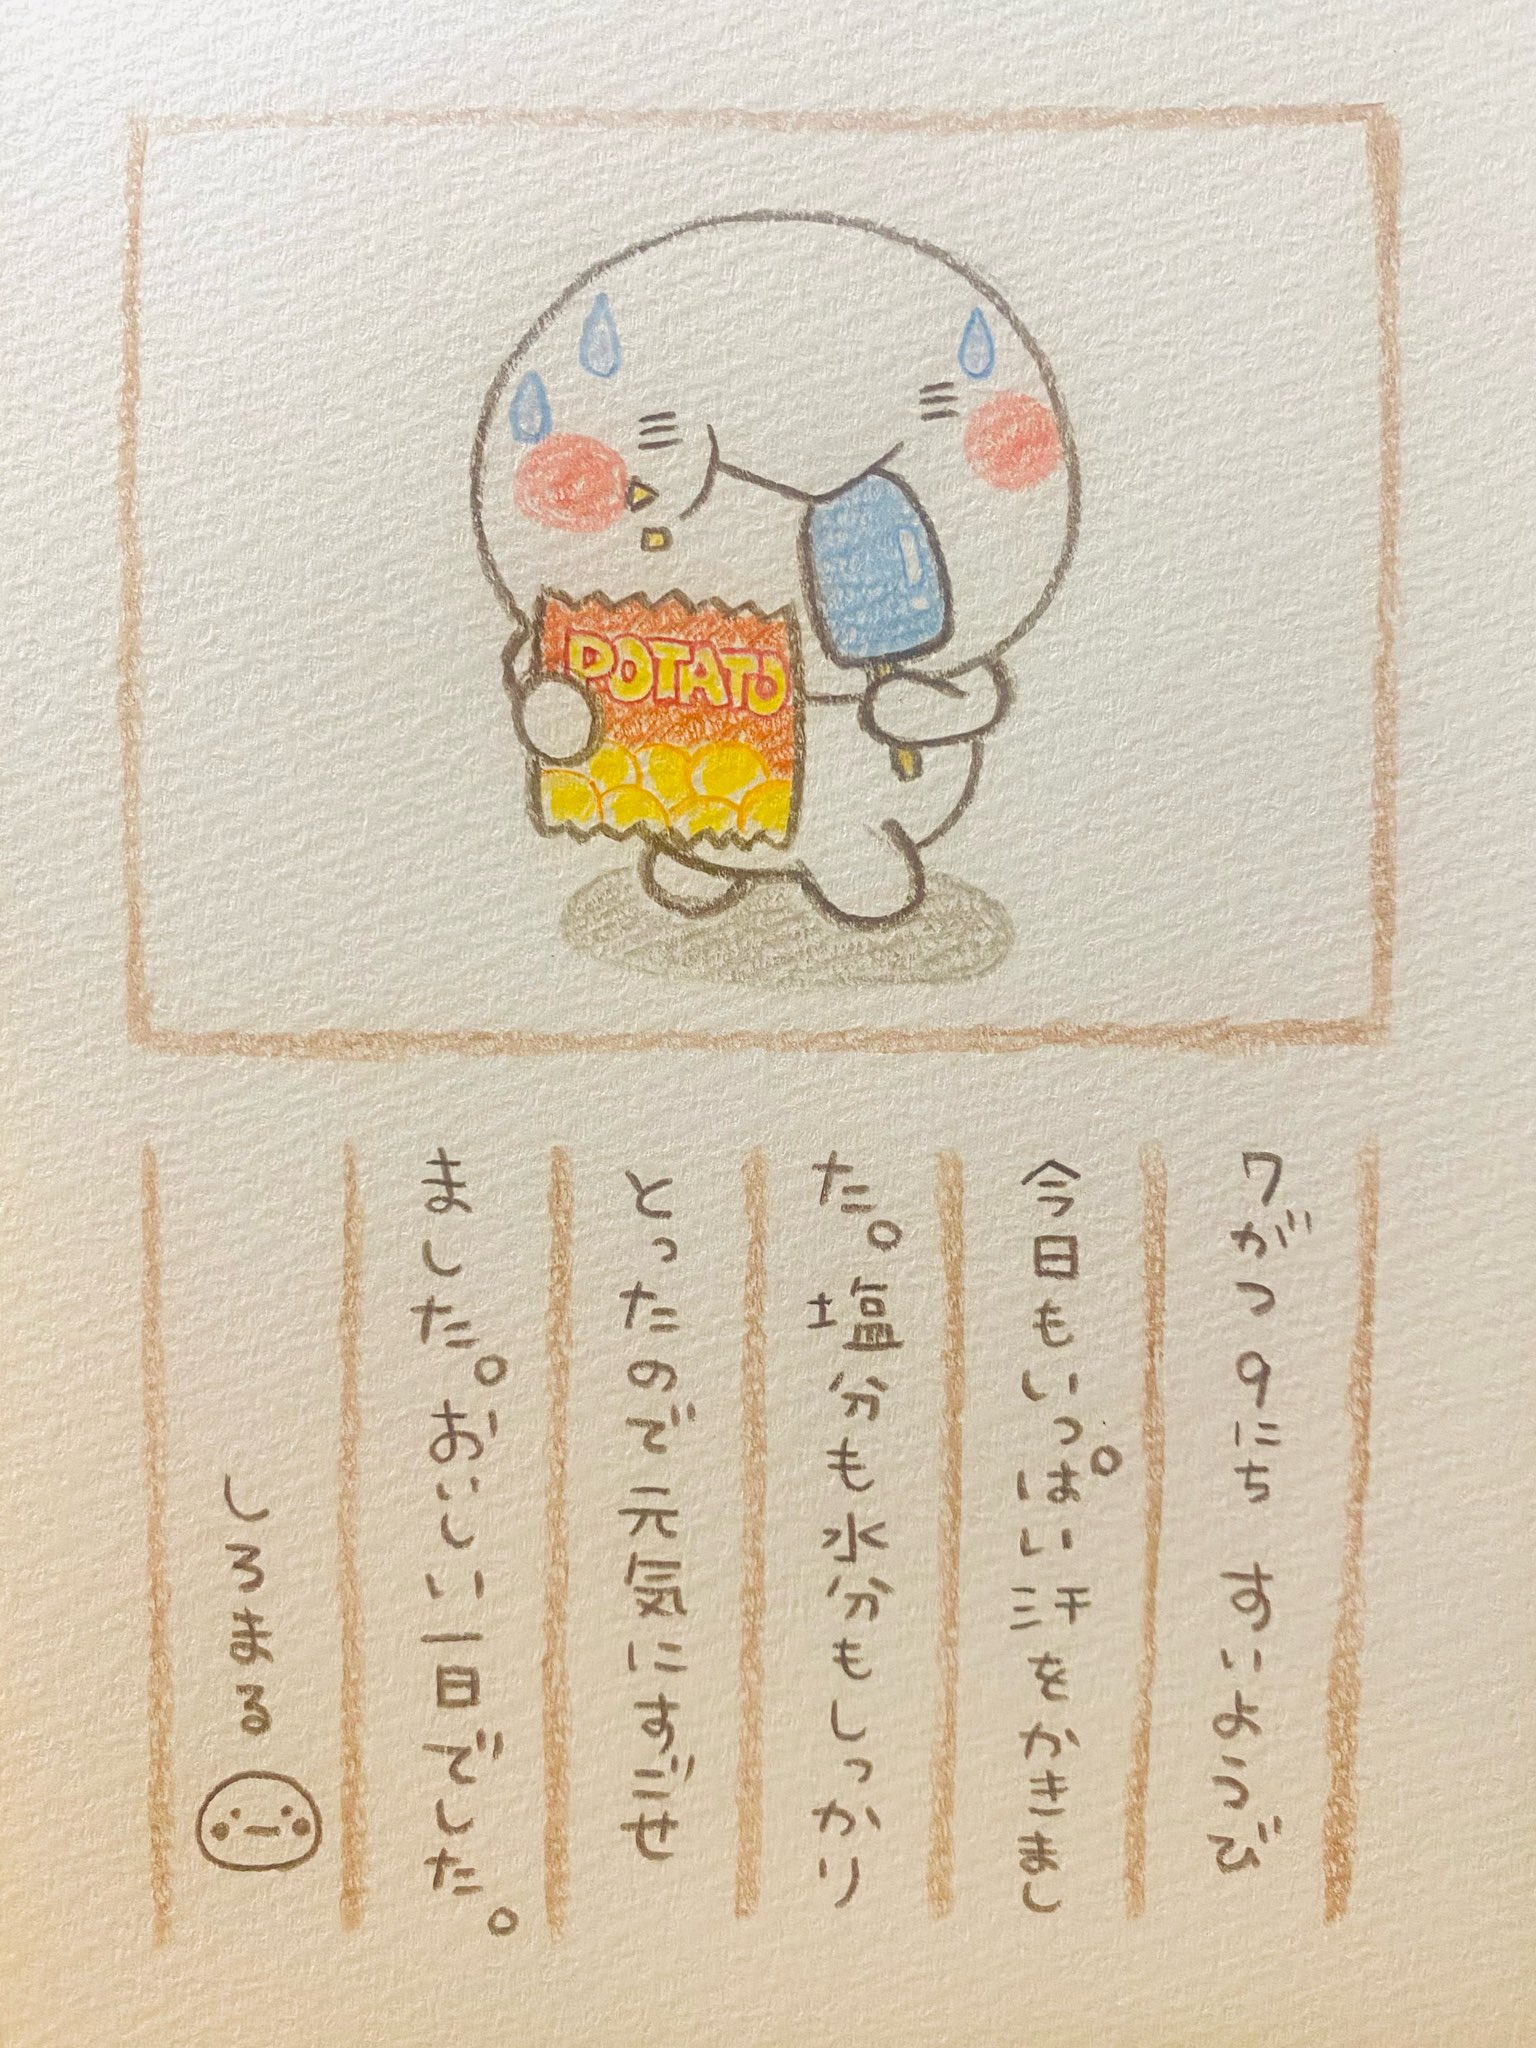 POTATO
7がつ9にち すいようび
今日もいっぱい汗をかきまし
た。塩分も水分もしっかり
とったので元気にすごせ
ました。おいしい一日でした。
しろまる